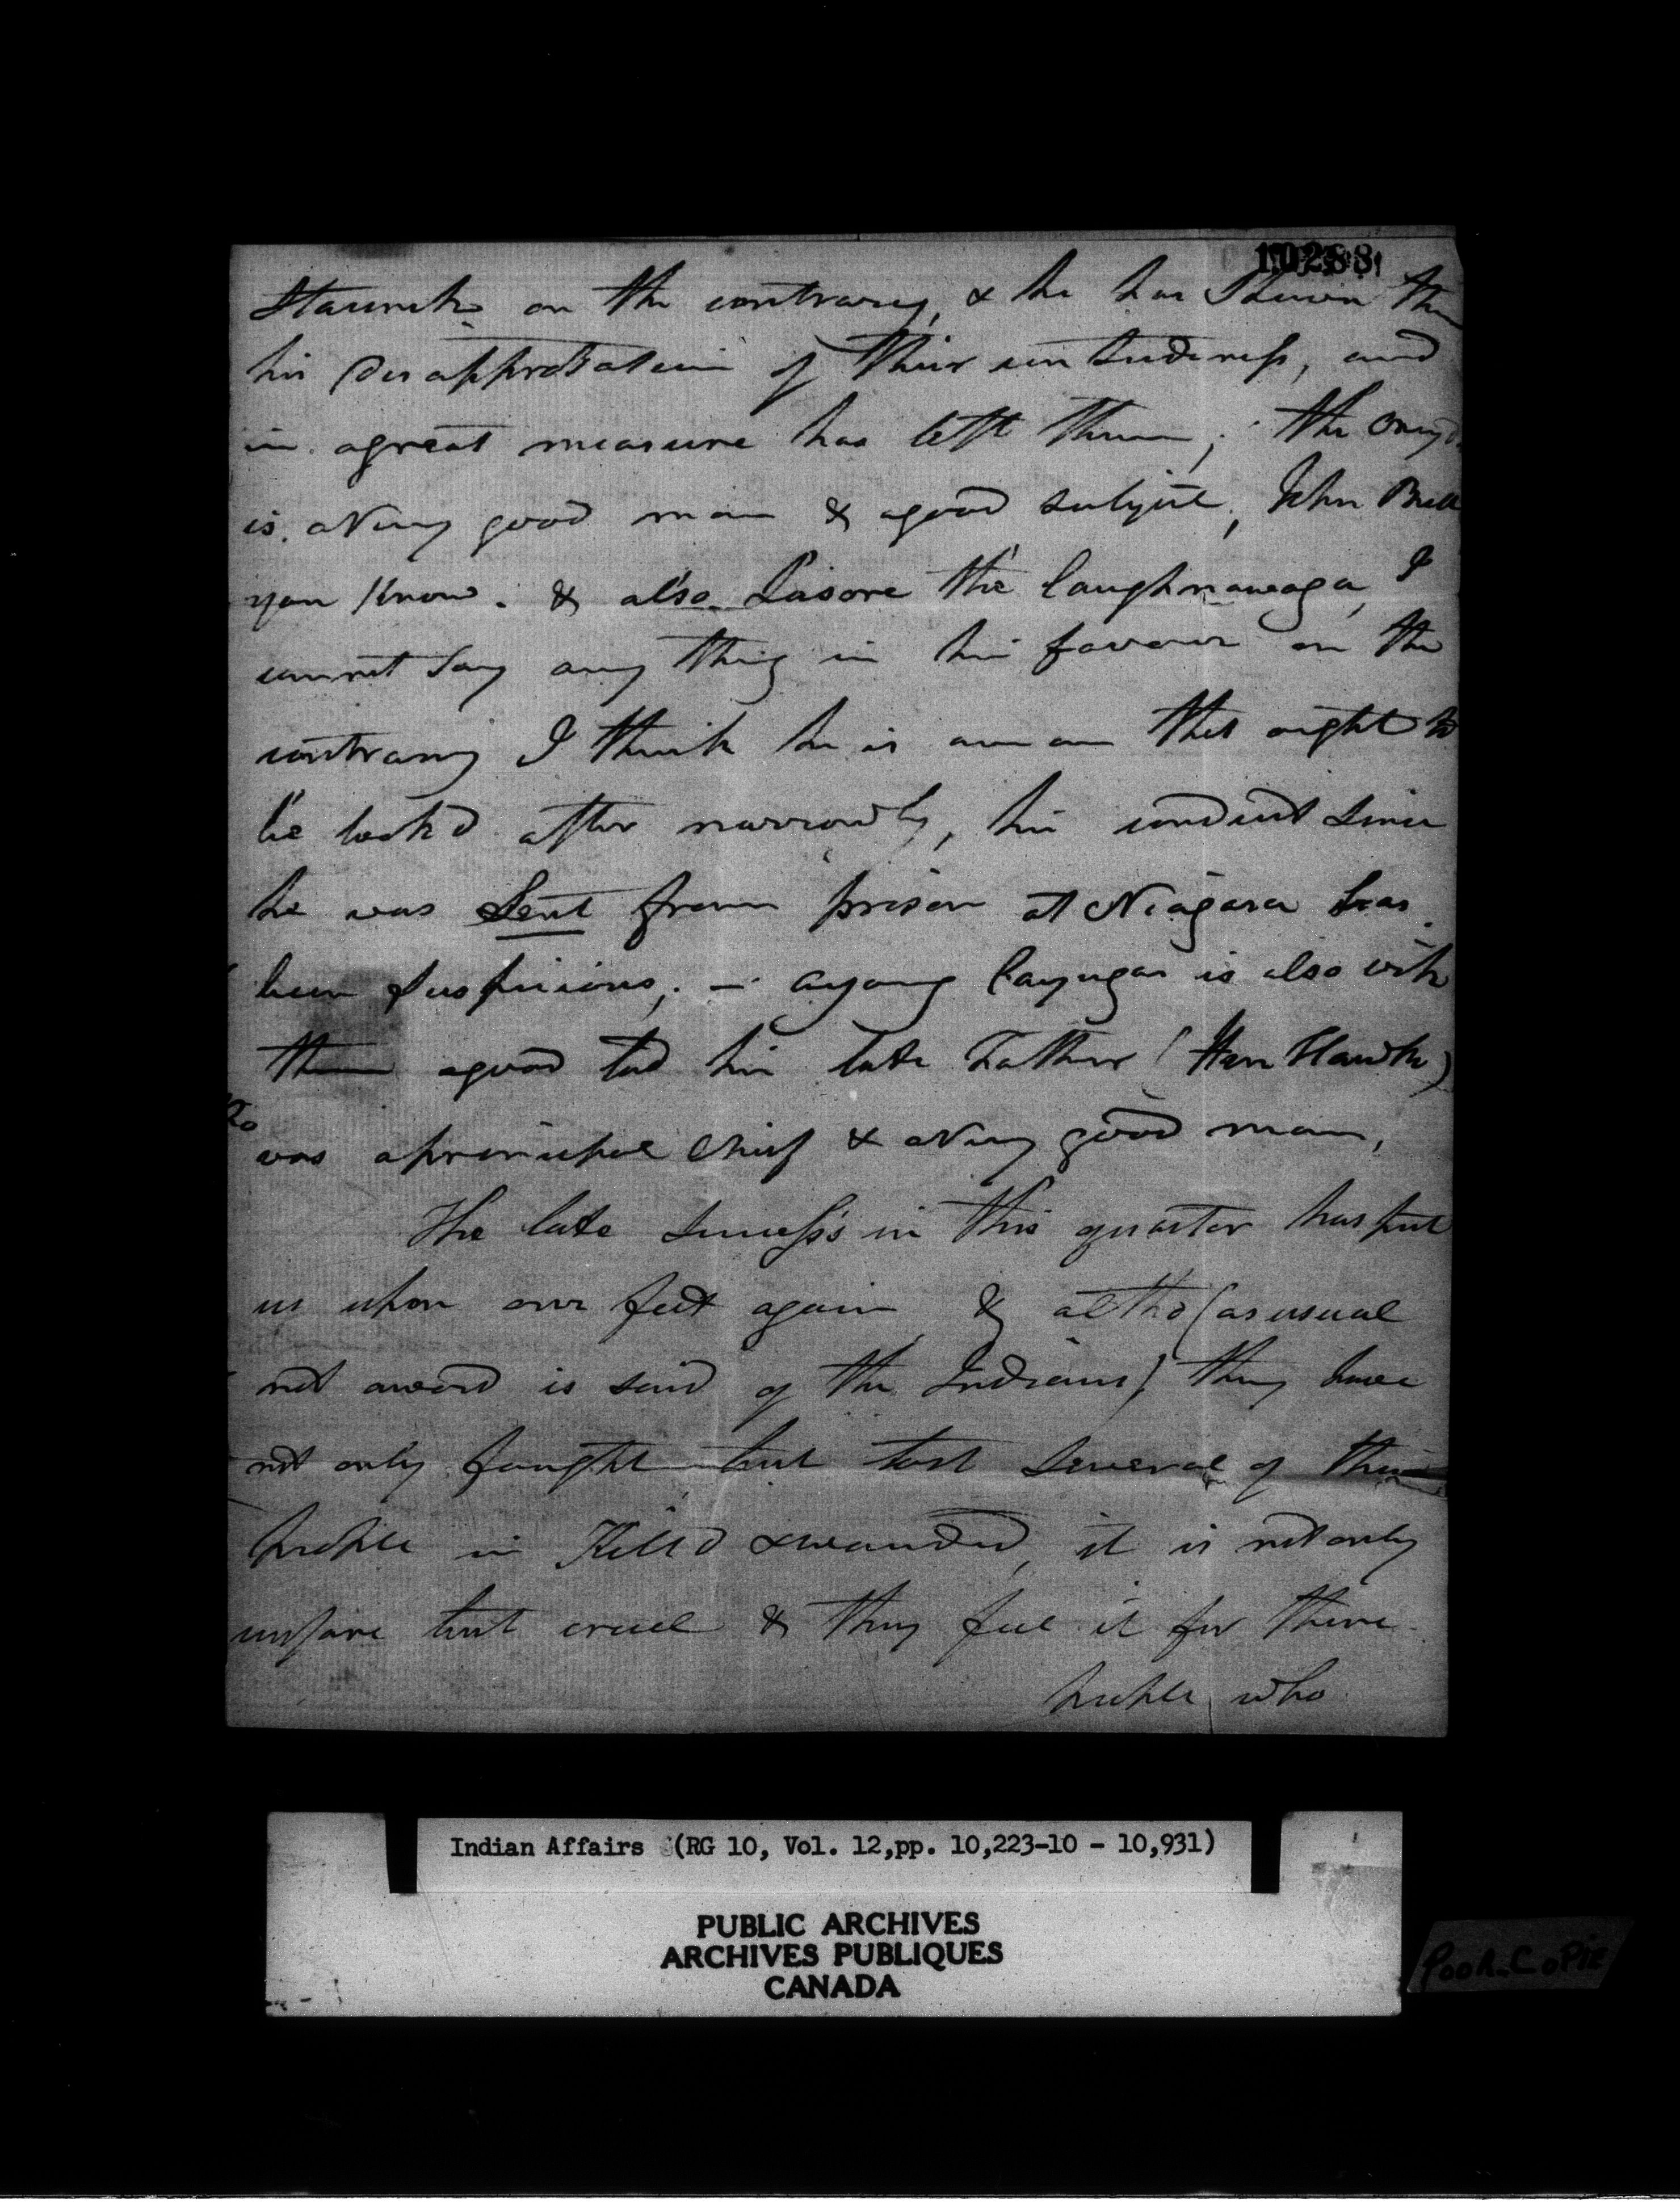 10288
Staunch on the contrary, & he has Shewn them
his Disapprobation of their unsteadiness, and
in agreat measure has left them; the Oneyda
is aVery good man & agood subject, John Bull
you Know. & also. the Caughnawaga, I
cannot Say any thing in his favour on the
contrary I think he is aman that ought to
be look'd after narrowly, his conduct Since
he was Sent from prison at Niagara has
been Suspicious; — ayoung Cayugar is also with
them agood lad his late Father
was aprincipal Chief & aVery good man,
The late Success's in this quarter has put
us upon our feet again & altho (as usual
not aword is said of the Indians) they have
not only fought but lost Several of their
people in Kill'd &wounded, it is not only
unfare but cruel & they feel it for there
people who
Indian Affairs (RG 10, Vol. 12,pp. 10,223-10 - 10,931)
PUBLIC ARCHIVES
ARCHIVES PUBLIQUES
CANADA
Pooh-CoPie